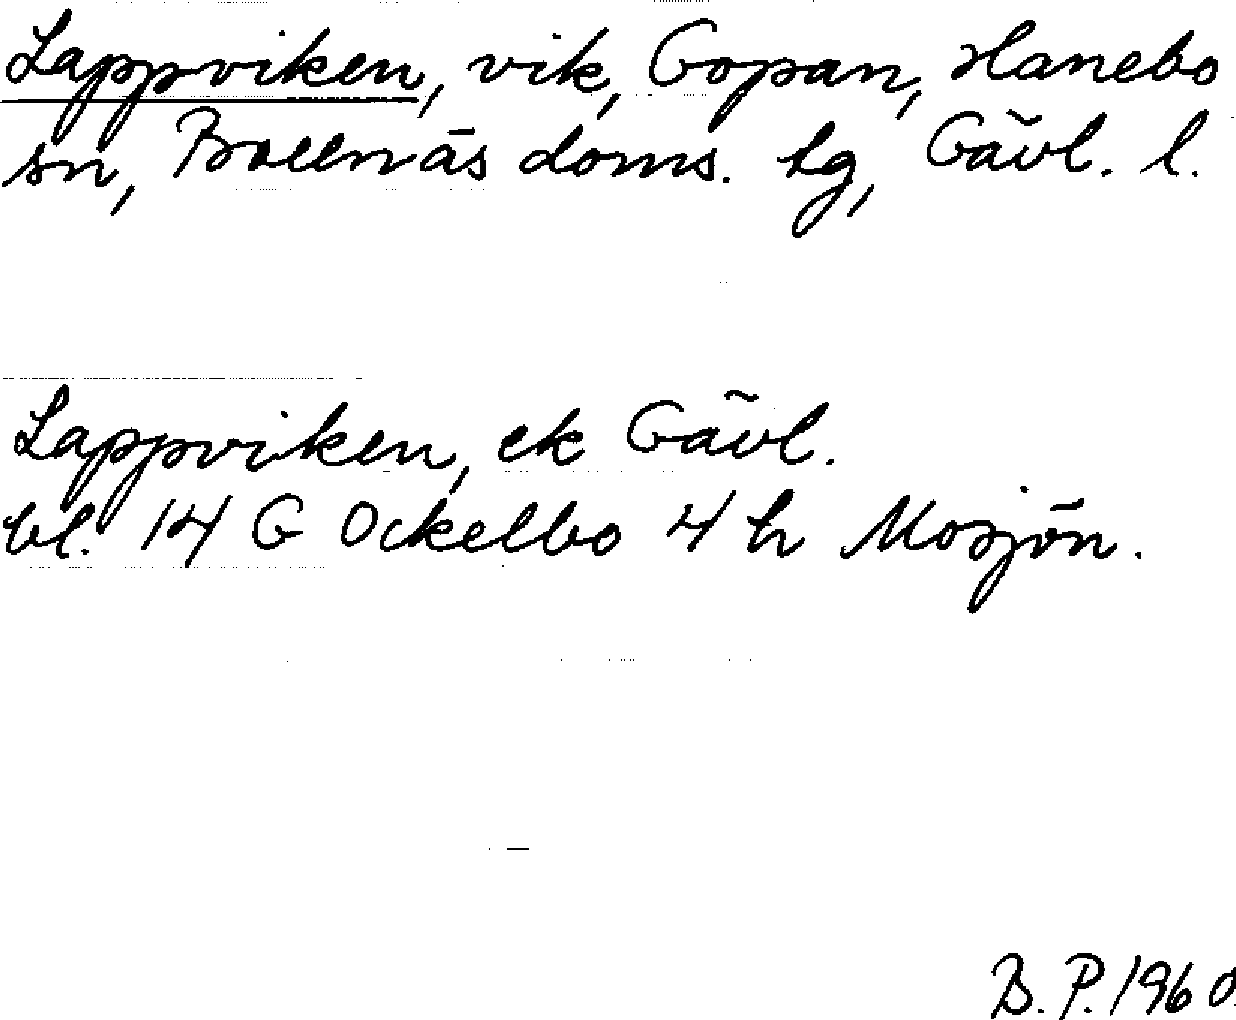 Lappviken, vik, Gopan, Hanebo
sn, Bollnäs doms. hg, Gävl. l.
Lappviken, ek Gävl.
bl. 14 G Ockelbo 4 h Mosjön.
B. P. 1960